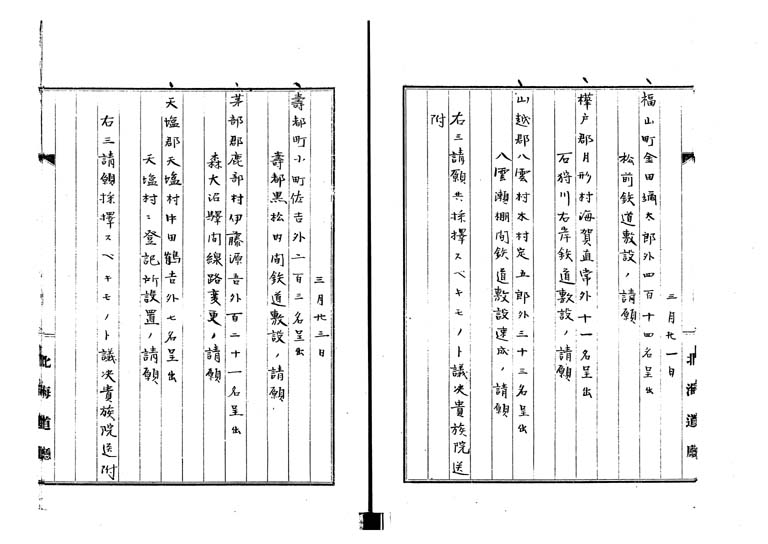 三月廿一日
福山町金田彌太郎外四百十四名呈出
松前鉄道敷設ノ請願
樺戸郡月形村海賀直常外十一名呈出
石狩川右岸鉄道敷設ノ請願
山越郡八雲村木村定五郎外三十三名呈出
八雲瀬棚間鉄道敷設速成ノ請願
右三請願共採擇スベキモノト議决貴族院送
附
北海道廳
三月廿三日
壽都町小町佐吉外二百三名呈出
壽都黒松内間鉄道敷設ノ請願
茅部郡鹿部村伊藤源吾外百二十一名呈出
森大沼驛間線路変更ノ請願
天塩郡天塩村中田鶴吉外七名呈出
天塩村ニ登記所設置ノ請願
右三請願採擇スベキモノト議决貴族院送附
北海道廳